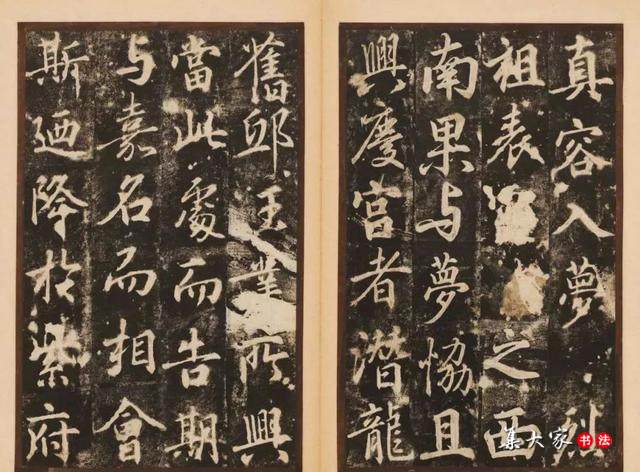 真容入夢烈
祖表之西
南果与夢恊且
興慶宫者潛龍
舊邸王業所興
當此處而告期
与嘉名而相會
斯廼降於紫府
集大家书法